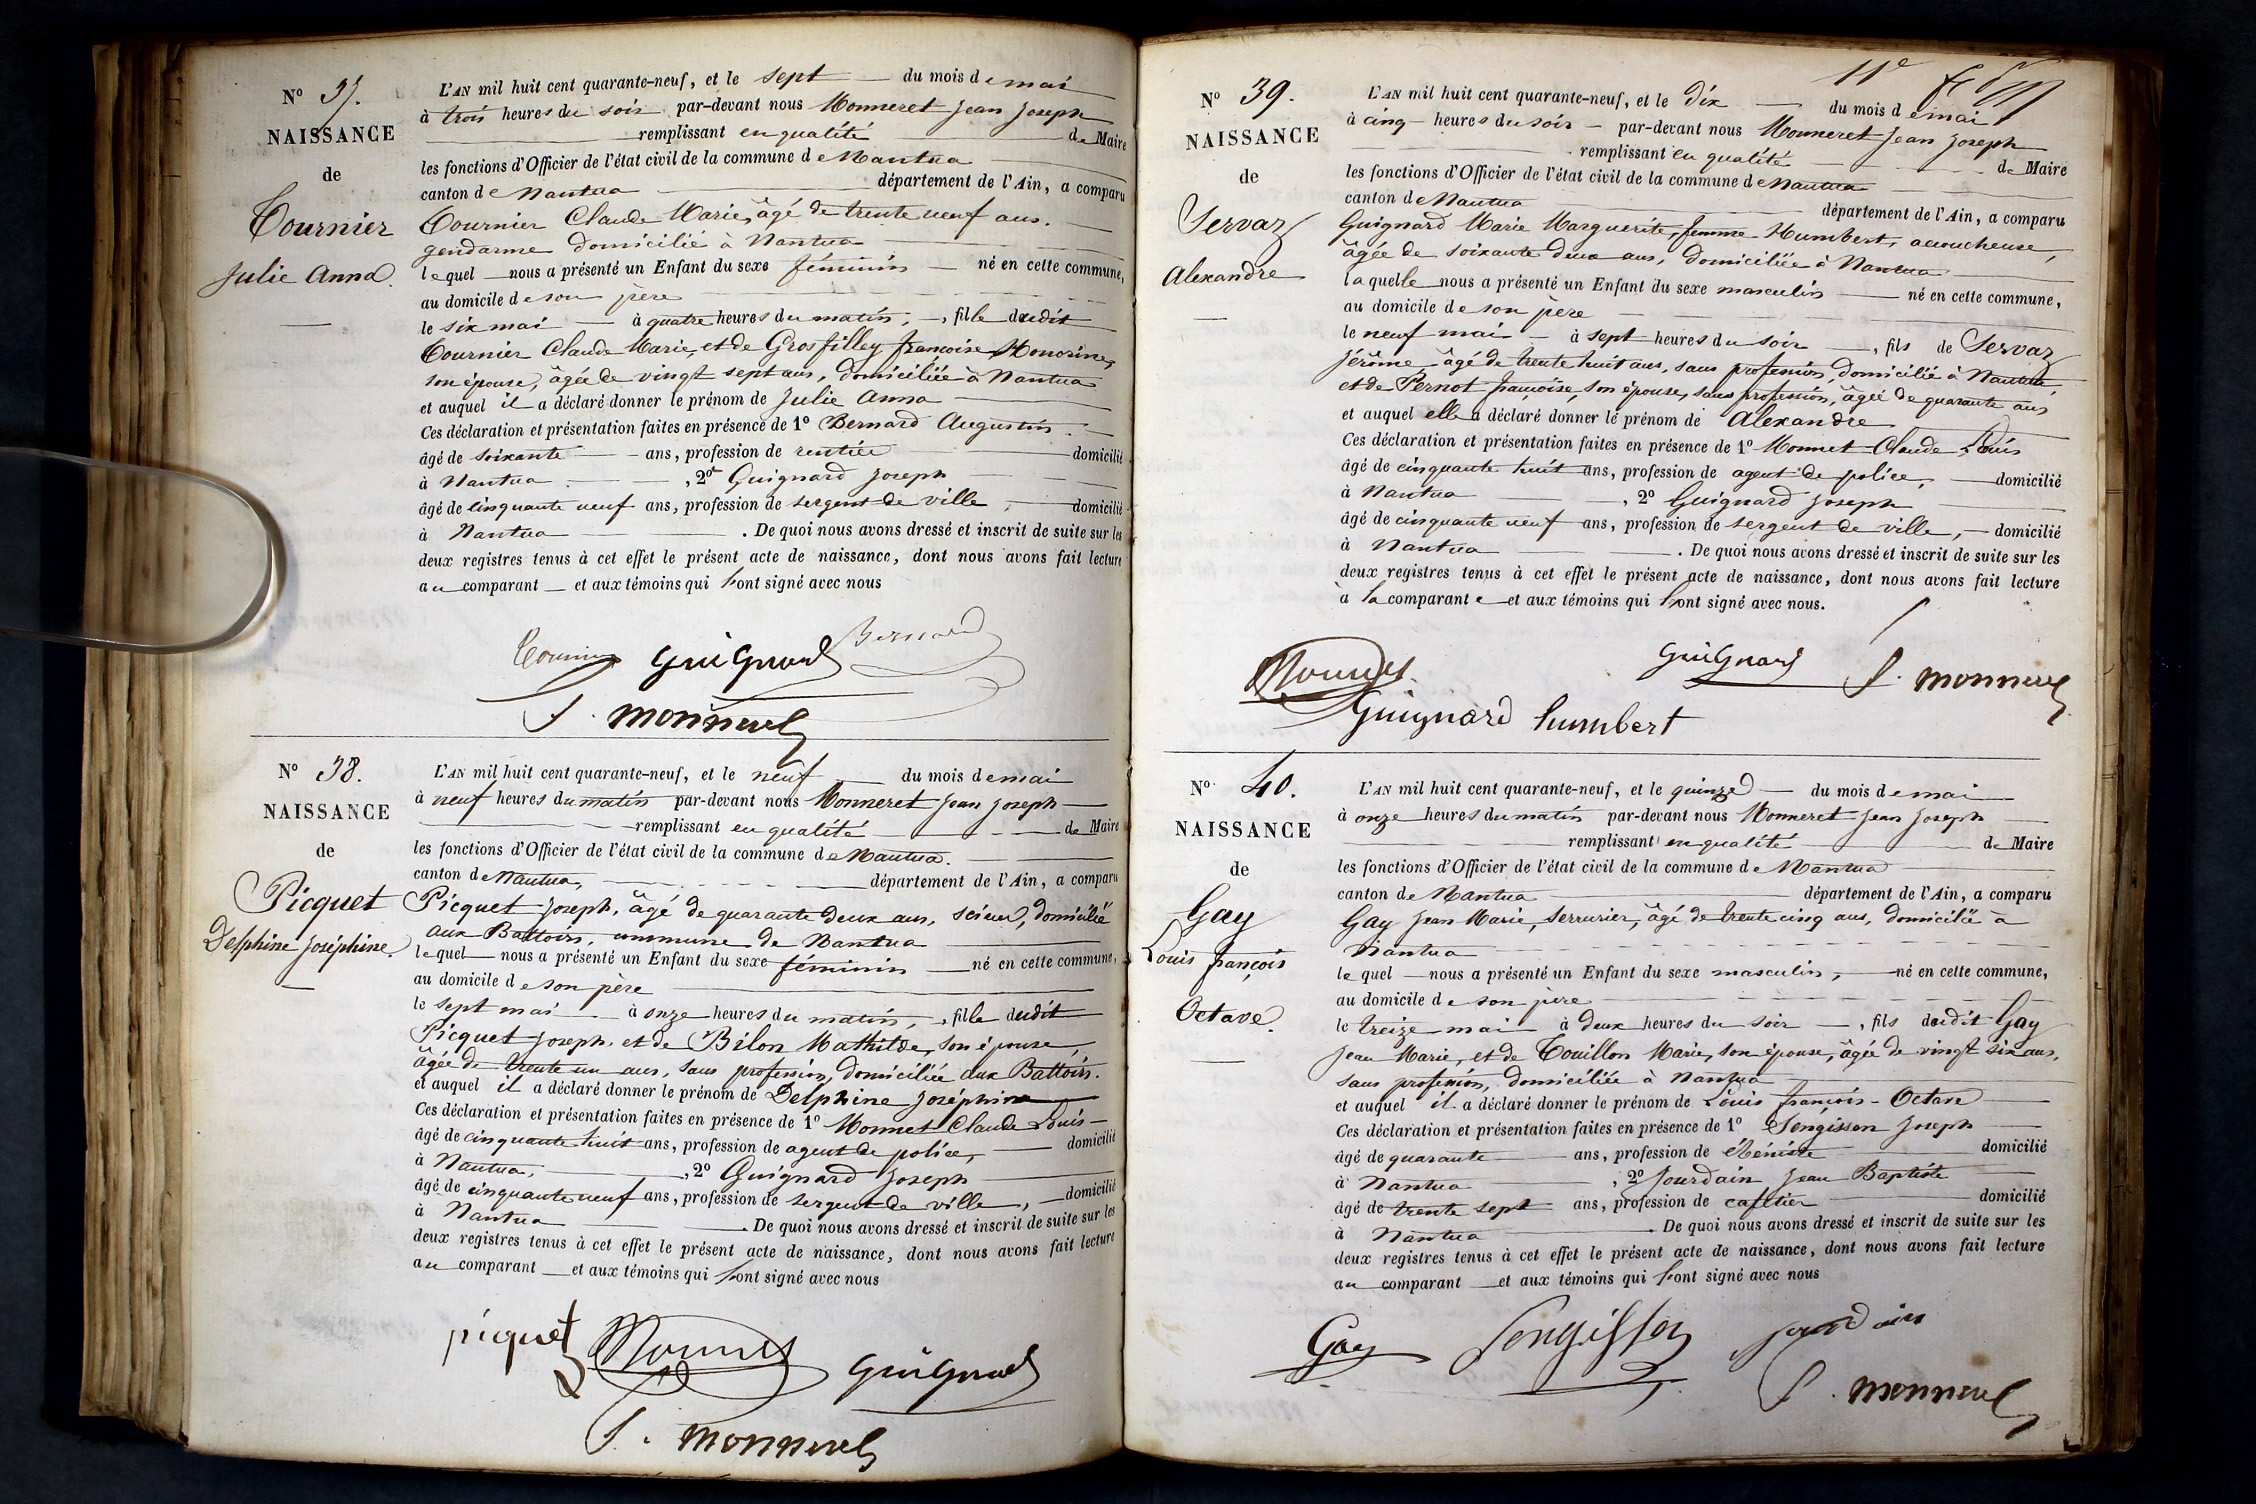 N° 37.
NAISSANCE
de
Tournier
Julie Anna.
L'AN mil huit cent quarante-neuf, et le sept du mois de mai
à trois heures du soir par-devant nous Monneret Jean Joseph
remplissant en qualité de Maire
les fonctions d'Officier de l'état civil de la commune de Nantua
canton de Nantua département de l'Ain, a comparu
Tournier Claude Marie, âgé de trente neuf ans.
gendarme domicilié à Nantua
lequel nous a présenté un Enfant du sexe féminin né en cette commune,
au domicile de son père
le six mai à quatre heures du matin, , fille dudit
Tournier Claude Marie, et de Grosfilley françoise Honorine,
son épouse, âgée de vingt sept ans, domiciliée à Nantua
et auquel il a déclaré donner le prénom de Julie Anna
Ces déclaration et présentation faites en présence de 1° Bernard Augustin.
âgé de soixante ans, profession de rentier domicilié
à Nantua , 2° Guignard Joseph
âgé de cinquante neuf ans, profession de sergent de ville, domicilié
à Nantua . De quoi nous avons dressé et inscrit de suite sur les
deux registres tenus à cet effet le présent acte de naissance, dont nous avons fait lecture
au comparant et aux témoins qui l'ont signé avec nous
Tournier Guignard Bernard
J. Monneret
N° 38.
NAISSANCE
de
Picquet
Delphine Joséphine.
L'AN mil huit cent quarante-neuf, et le neuf du mois de mai
à neuf heures du matin par-devant nous Monneret Jean Joseph
remplissant en qualité de Maire
les fonctions d'Officier de l'état civil de la commune de Nantua.
canton de Nantua, département de l'Ain, a comparu
Picquet Joseph, âgé de quarante deux ans, scieur, domicilié
aux Battoirs, commune de Nantua
lequel nous a présenté un Enfant du sexe féminin né en cette commune,
au domicile de son père
le sept mai à onze heures du matin, , fille dudit
Picquet Joseph, et de Bilon Mathilde, son épouse,
âgée de trente un ans, sans profession, domiciliée aux Battoirs.
et auquel il a déclaré donner le prénom de Delphine Joséphine
Ces déclaration et présentation faites en présence de 1° Monnet Claude Louis
âgé de cinquante huit ans, profession de agent de police, domicilié
à Nantua, , 2° Guignard Joseph
âgé de cinquante neuf ans, profession de sergent de ville, domicilié
à Nantua . De quoi nous avons dressé et inscrit de suite sur les
deux registres tenus à cet effet le présent acte de naissance, dont nous avons fait lecture
au comparant et aux témoins qui l'ont signé avec nous
piquet Monnet Guignard
J. Monneret
11e
N° 39.
NAISSANCE
de
Servaz
Alexandre
L'AN mil huit cent quarante-neuf, et le dix du mois de mai
à cinq heures du soir par-devant nous Monneret Jean Joseph
remplissant en qualité de Maire
les fonctions d'Officier de l'état civil de la commune de Nantua
canton de Nantua département de l'Ain, a comparu
Guignard Marie Marguerite, femme Humbert, accoucheuse,
âgée de soixante deux ans, domiciliée à Nantua
laquelle nous a présenté un Enfant du sexe masculin né en cette commune,
au domicile de son père
le neuf mai à sept heures du soir , fils de Servaz
Jérôme âgé de trente huit ans, sans profession, domicilié à Nantua
et de Pernot françoise, son épouse, sans profession, âgée de quarante ans
et auquel elle a déclaré donner le prénom de Alexandre
Ces déclaration et présentation faites en présence de 1° Monnet Claude Louis
âgé de cinquante huit ans, profession de agent de police, domicilié
à Nantua , 2° Guignard Joseph
âgé de cinquante neuf ans, profession de sergent de ville, domicilié
à Nantua . De quoi nous avons dressé et inscrit de suite sur les
deux registres tenus à cet effet le présent acte de naissance, dont nous avons fait lecture
à la comparante et aux témoins qui l'ont signé avec nous.
Monnet Guignard J. Monneret
Guignard humbert
N° 40.
NAISSANCE
de
Gay
Louis françois
Octave.
L'AN mil huit cent quarante-neuf, et le quinze du mois de mai
à onze heures du matin par-devant nous Monneret Jean Joseph
remplissant en qualité de Maire
les fonctions d'Officier de l'état civil de la commune de Nantua
canton de Nantua département de l'Ain, a comparu
Gay Jean Marie, serrurier, âgé de trente cinq ans, domicilié à
Nantua
lequel nous a présenté un Enfant du sexe masculin, né en cette commune,
au domicile de son père
le treize mai à deux heures du soir , fils dudit Gay
Jean Marie, et de Touillon Marie, son épouse, âgée de vingt six ans,
sans profession, domiciliée à Nantua
et auquel il a déclaré donner le prénom de Louis françois-Octave
Ces déclaration et présentation faites en présence de 1° Songisson Joseph
âgé de quarante ans, profession de ébéniste domicilié
à Nantua , 2° Jourdain Jean Baptiste
âgé de trente sept ans, profession de caftier domicilié
à Nantua . De quoi nous avons dressé et inscrit de suite sur les
deux registres tenus à cet effet le présent acte de naissance, dont nous avons fait lecture
au comparant et aux témoins qui l'ont signé avec nous
Gay Songisson Jourdain
J. Monneret